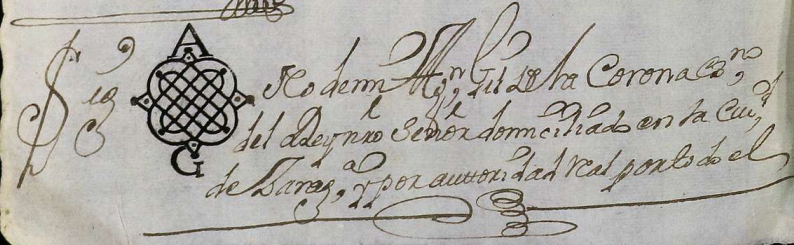 Sig
A
G
No de mi Mn, Gil de la Corona Esno,
del Rey nro Señor domiciliado en la Ciud,
de Zaraga, y por auttoridad real por todo el